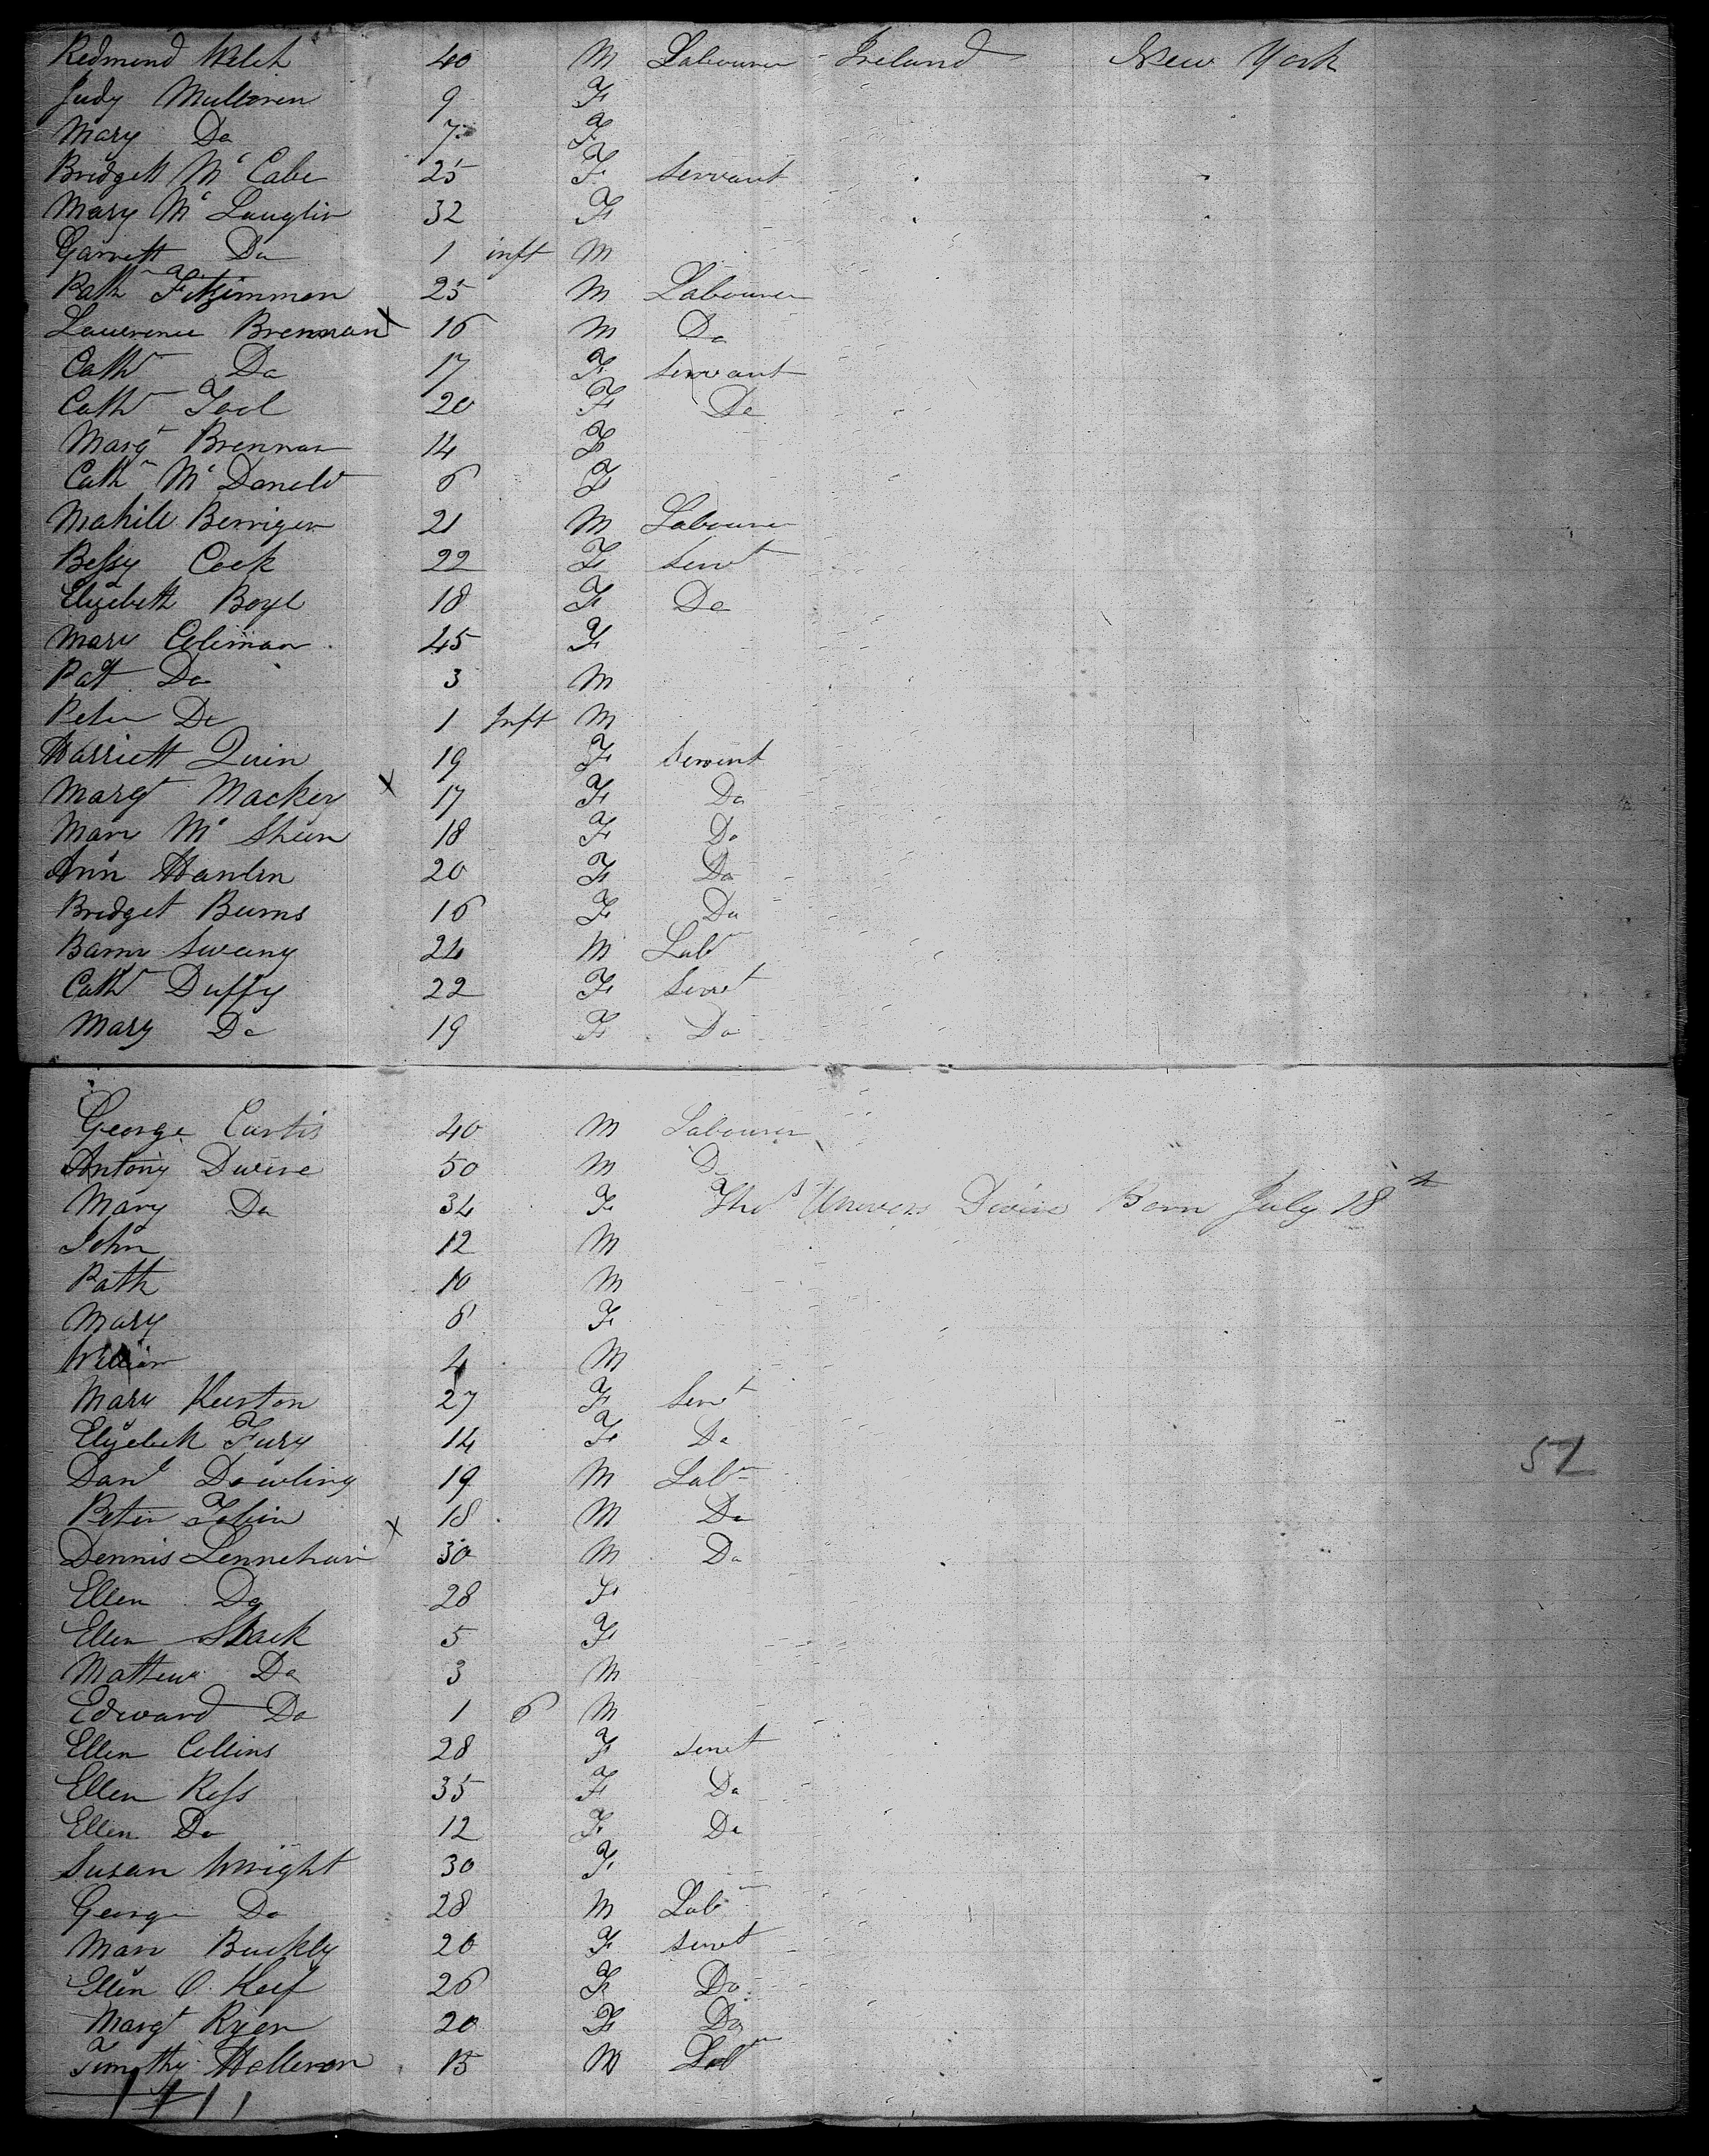 Redmond Welch 40 M Labourer Ireland New York
Judy Mulloren 9 F
Mary Do 7 F
Bridgett Mc Cabe 25 F Servant
Mary Mc Lauglin 32 F
Garrett Do 1 inft M
Patk Fitzsimmon 25 M Labourer
Lawerence Brennan X 16 M Do
Cathr Do 17 F Servant
Cathr Tool 20 F Do
Margt Brennan 14 F
Cathr Mc Donald 6 F
Berrigen 21 M Labourer
Bessy Cook 22 F Servt
Elizebeth Boyl 18 F Do
Mary Coliman 45 F
Pat Do 3 M
Peter Do 1 Inft M
Harriett Quin 19 F Servant
Margt Mackey X 17 F Do
Mary Mc Sheen 18 F Do
Ann Hanlin 20 F Do
Bridget Burns 16 F Do
Barny Sweeny 24 M Labr
Cathr Duffy 22 F Servt
Mary Do 19 F Do
George Curtis 40 M Labourer
Antony Divine 50 M Do
Mary Do 34 F Thos Divine Born July 18th
John 12 M
Patk 10 M
Mary 8 F
William 4 M
Mary Keeston 27 F Servt
Elizebeth Fury 14 F Do
Danl Dowling 19 M Labr
51
Peter Tobin 18 M Do
Dennis Lennehan X 30 M Do
Ellen Do 28 F
Ellen Shack 5 F
Mathew Do 3 M
Edward Do 1 6 M
Ellen Collins 28 F Servt
Ellen Ross 35 F Do
Ellen Do 12 F Do
Susan Wright 30 F
George Do 28 M Labr
Mary Buckly 20 F Servt
Ellen O. Keef 26 F Do
Margt Ryen 20 F Do
Timothy Halleron 15 M Labr